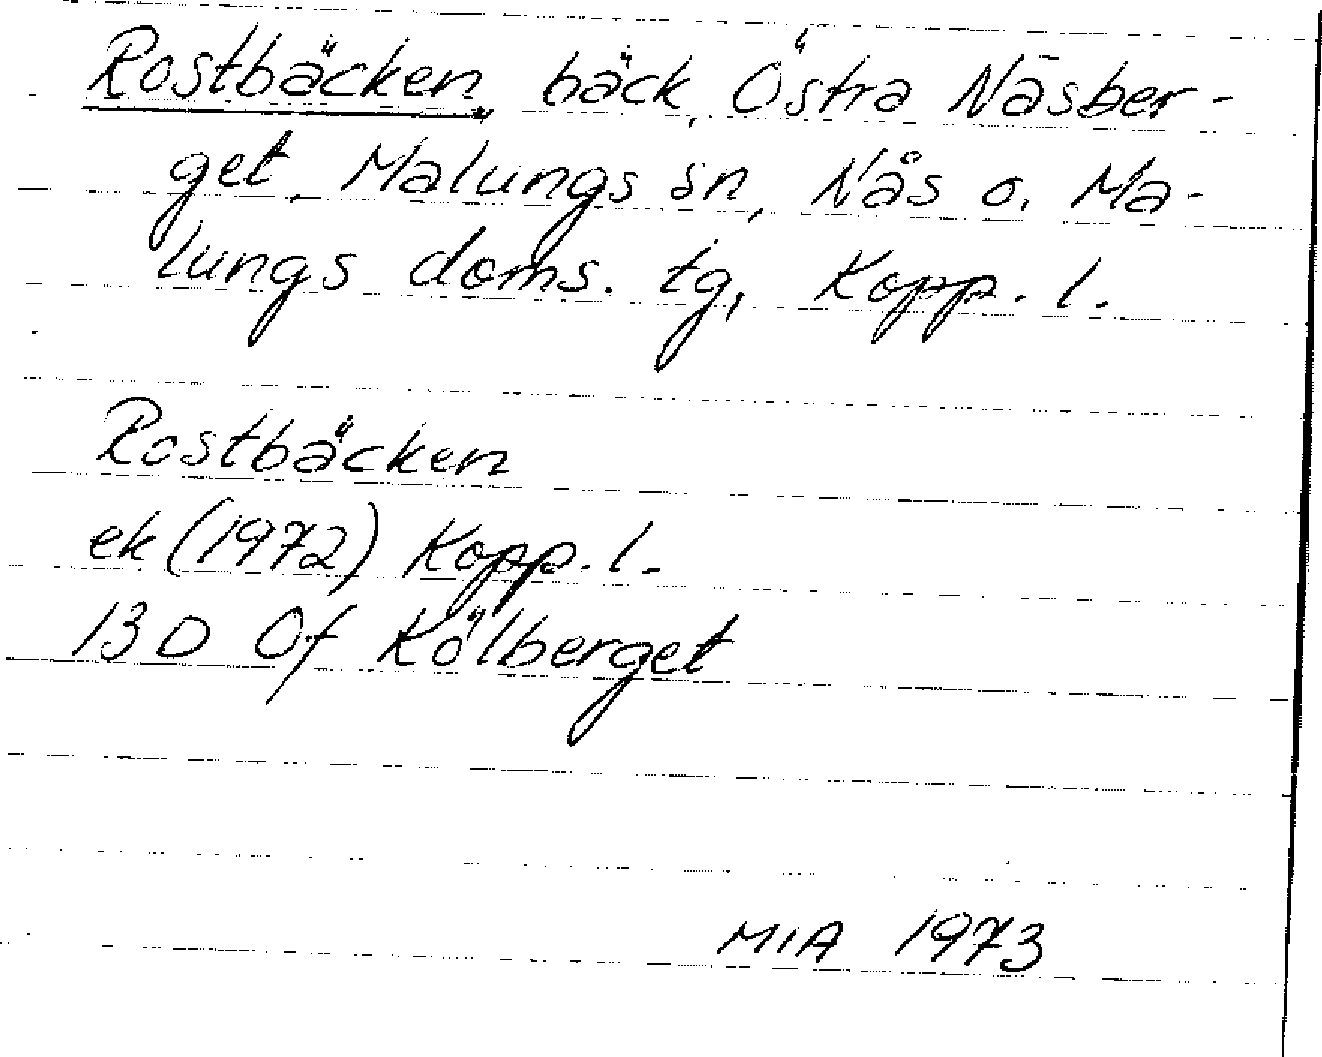 Rostbäcken, bäck, Östra Näsber-
get, Malungs sn, Nås o. Ma-
lungs doms. tg, Kopp. l.
Rostbäcken
ek (1972) Kopp. l.
13 D Of Kölberget
MIA 1973